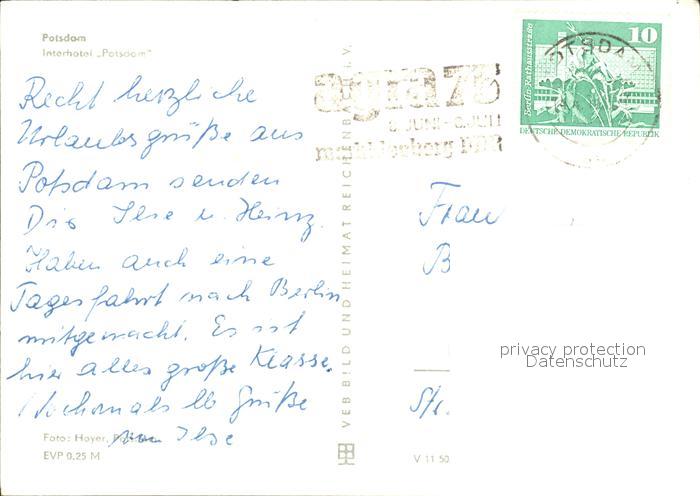 Potsdam
Interhotel „Potsdam"
Recht herzliche
Urlaubsgrüße aus
Potsdam senden
Dir Ilse u. Heinz.
Haben auch eine
Tagesfahrt nach Berlin
mitgemacht. Es ist
hier alles große Klasse.
Nochmals lb Grüße
von Ilse
Foto: Hoyer,
EVP 0,25 M
VEB BILD UND HEIMAT REICHENBACH i. V.
V 11 50
agra 75
JUNI - 6. JULI
markkleeberg DDR
POTSDAM
10
Berlin, Rathausstraße
DEUTSCHE DEMOKRATISCHE REPUBLIK
Frau
B
Str.
privacy protection
Datenschutz